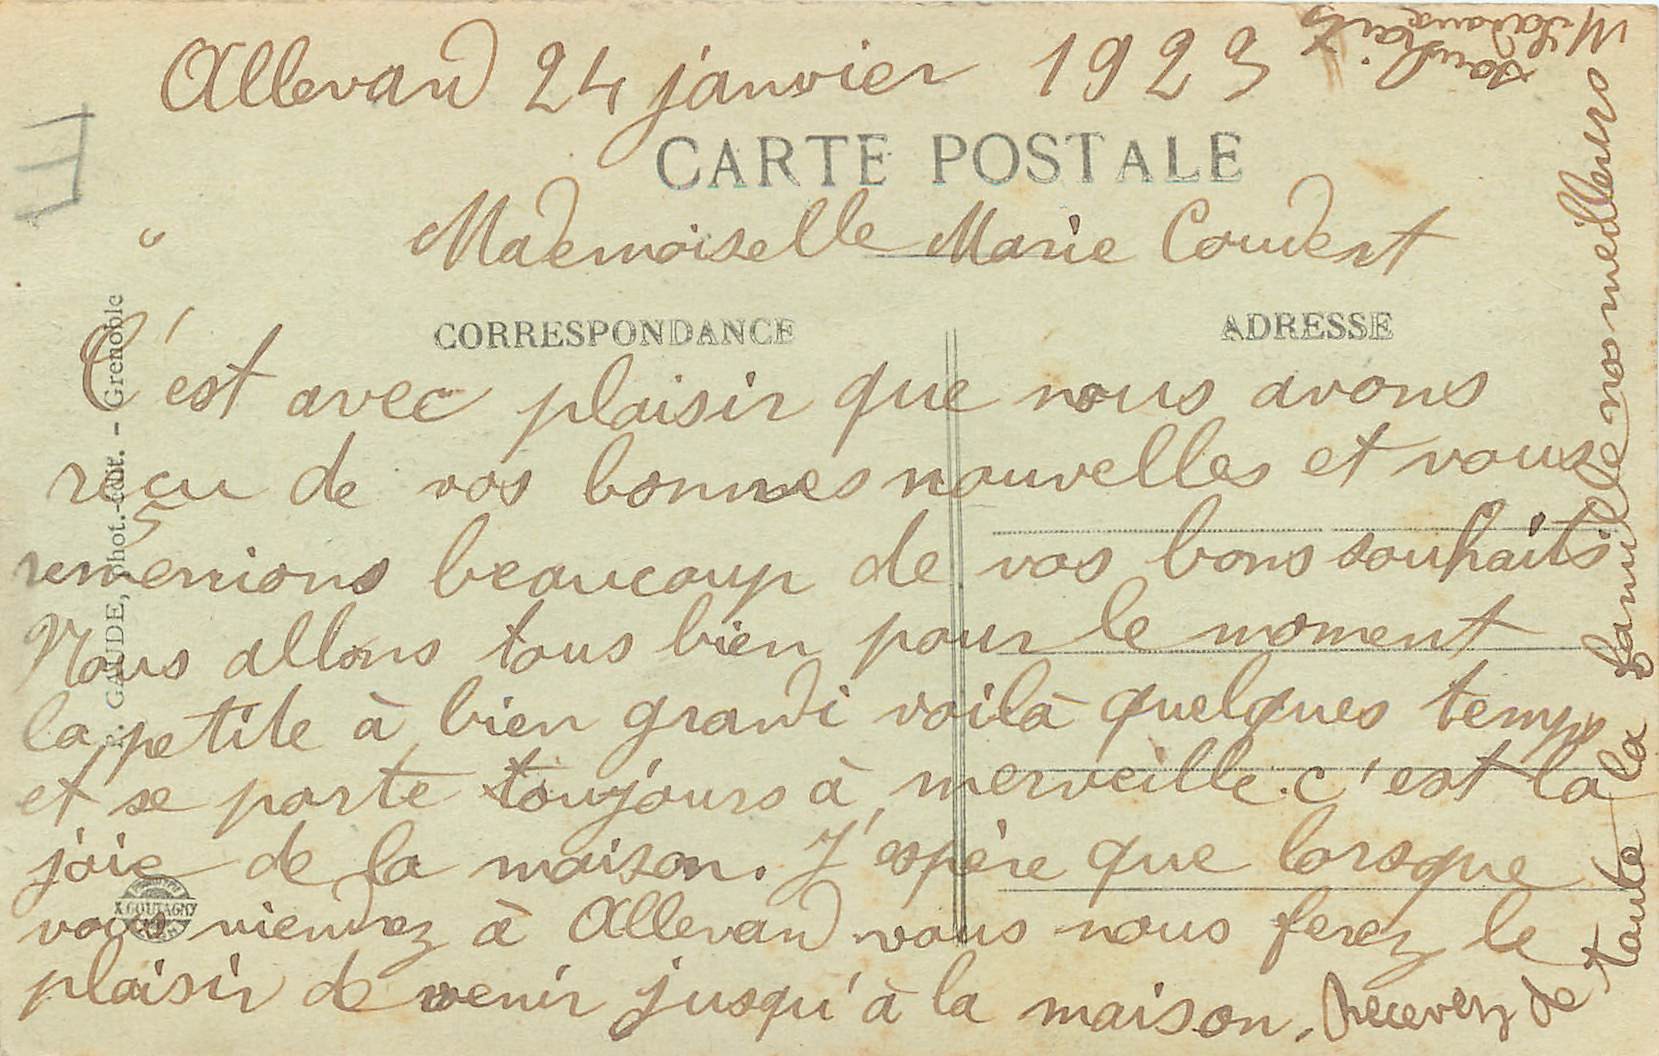 Allevard 24 janvier 1923
CARTE POSTALE
Mademoiselle Marie Coudert
CORRESPONDANCE
ADRESSE
C'est avec plaisir que nous avons
reçu de vos bonnes nouvelles et vous
remerrions beaucoup de vos bons souhaits
Nous allons tous bien pour le moment
la petite à bien grandi voilà quelques temps
et se porte toujours à merveille. c'est la
joie de la maison. J'espère que lorsque
vous viendrez à Allevard vous nous ferez le
plaisir de venir jusqu'à la maison. Recevez de
toute la famille nos meilleurs
souhaits
GAUDE, phot.-édit. - Grenoble
X. GOUTAGNY